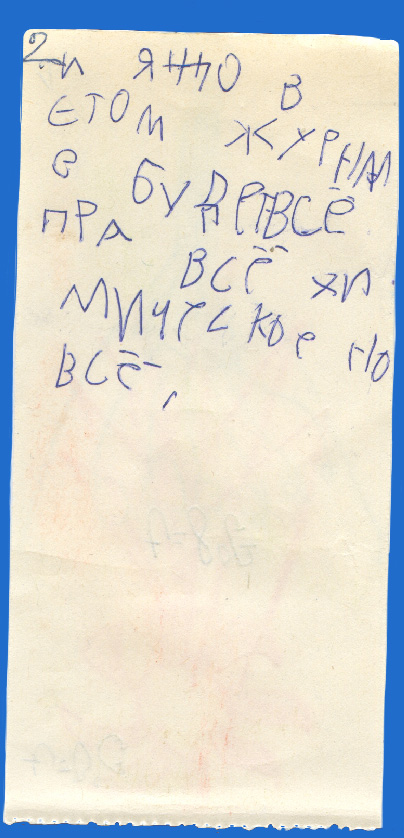 2
И ЯННО В
ЕТОМ ЖУРНАЛ
Е БУДЕТ ВСЁ
ПРА ВСЁ ХИ
МИЧЕСКОЕ НО
ВСЁ,